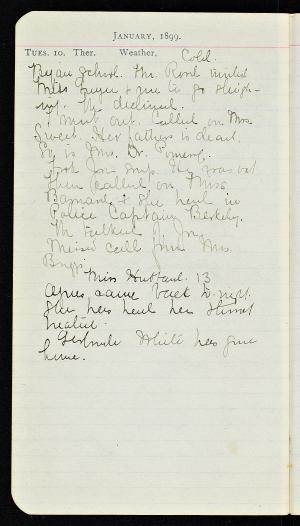 JANUARY, 1899.
TUES. 10. Ther. Weather. Cold.
Began school. Mr. Rood invited
Miss & me to go sleigh-
ing. We declined.
I went out. Called on Mrs.
Sweet. Her father is dead.
So is Mrs. Dr. Pomeroy.
Took Joe He was out
then called on Miss
Barnard & she went in
Police Captain
We talked of Joe.
Missed call from Mrs.
Briggs.
Miss Hubbard. 13
Agnes came back to-night.
She has had her throat
treated.
Gertrude White has gone
home.